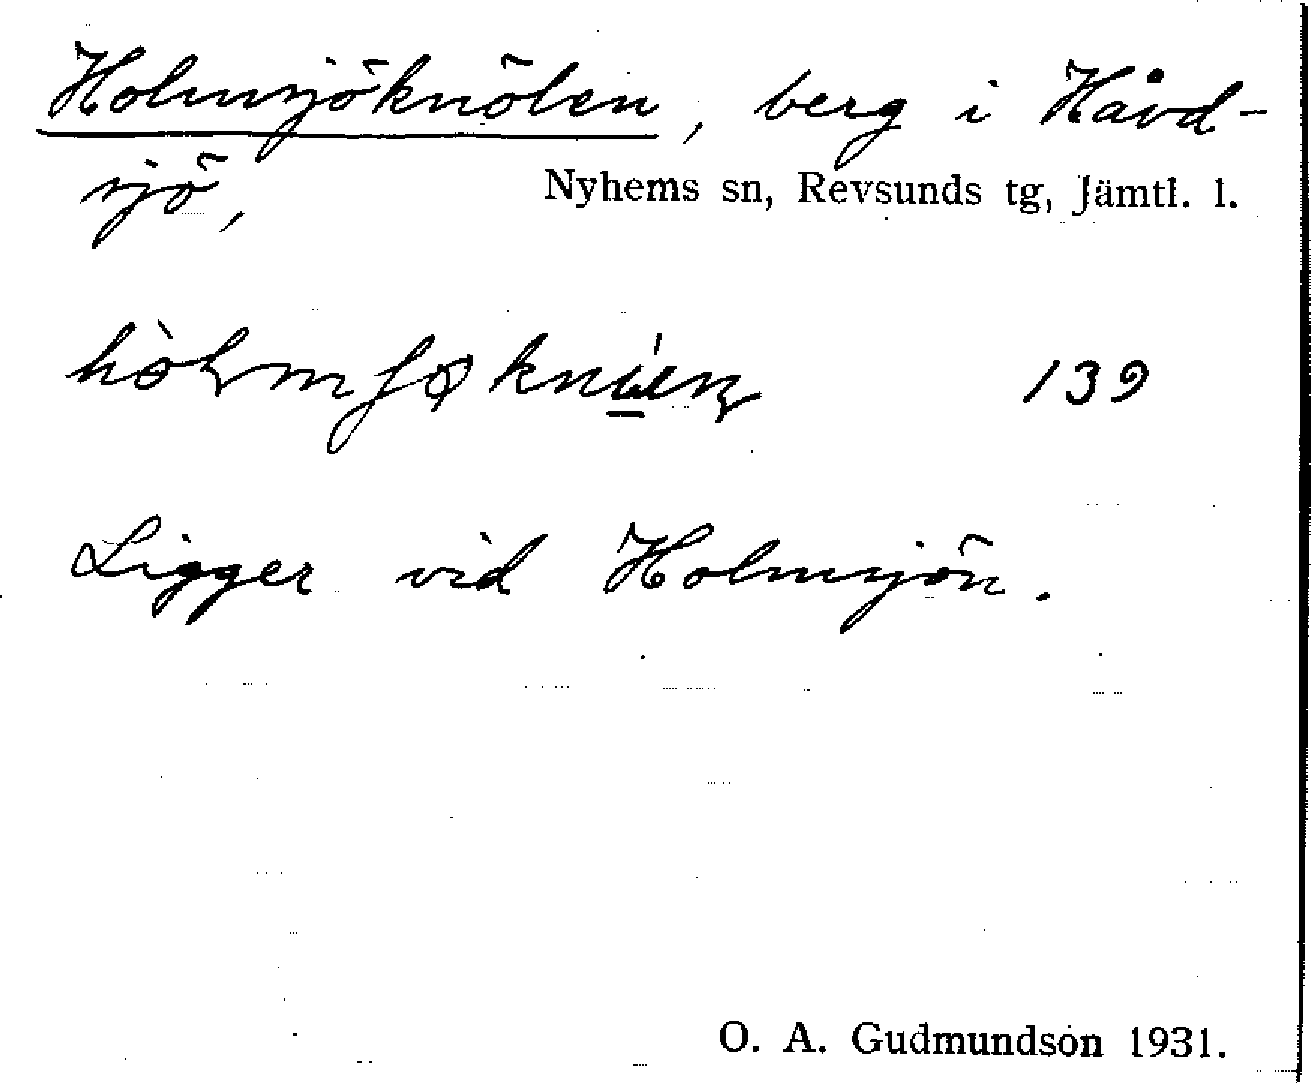 Holmsjöknölen, berg i Håvd-
sjö, Nyhems sn, Revsunds tg, Jämtl. l.
139
Ligger vid Holmsjön.
O. A. Gudmundson 1931.